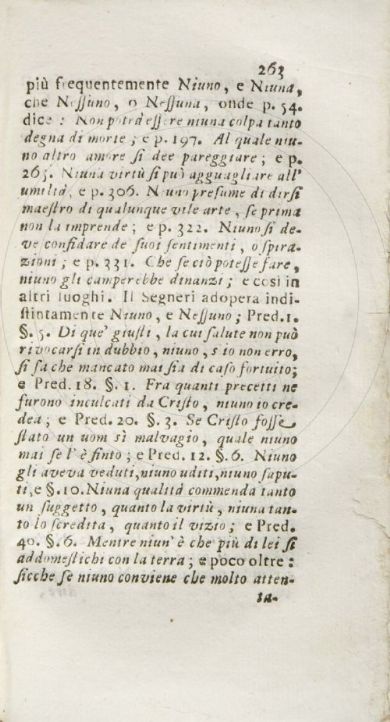 263
più frequentemente Niuno, e Niuna,
che Neſſuno, o Neſſuna, onde p. 54.
dice: Non potrà eſſere niuna colpa tanto
degna di morte; e p. 197. Al quale niu-
no altro amore ſi dee pareggiare; e p.
265. Niuna virtù ſi può agguagliare all'
umiltà, e p. 306. Niuno preſume di dirſi
maeſtro di qualunque vile arte, ſe prima
non la imprende; e p. 322. Niuno ſi de-
ve confidare de' ſuoi ſentimenti, o ſpira-
zioni; e p. 331. Che ſe ciò poteſſe fare,
niuno gli camperebbe dinanzi; e così in
altri luoghi. Il Segneri adopera indi-
ſtintamente Niuno, e Neſſuno; Pred. 1.
§. 5. Di que' giuſti, la cui ſalute non può
rivocarſi in dubbio, niuno, s'io non erro,
ſi ſa che mancato mai ſia di caſo fortuito;
e Pred. 18. §. 1. Fra quanti precetti ne
furono inculcati da Criſto, niuno io cre-
dea; e Pred. 20. §. 3. Se Criſto foſſe
ſtato un uom sì malvagio, quale niuno
mai ſe l' è finto; e Pred. 12. §. 6. Niuno
gli aveva veduti, niuno uditi, niuno ſapu-
ti, e §. 10. Niuna qualità commenda tanto
un ſuggetto, quanto la virtù, niuna tan-
to lo ſcredita, quanto il vizio; e Pred.
40. §. 6. Mentre niun' è che più di lei ſi
addomeſtichi con la terra; e poco oltre:
ſicche ſe niuno conviene che molto atten-
ta-